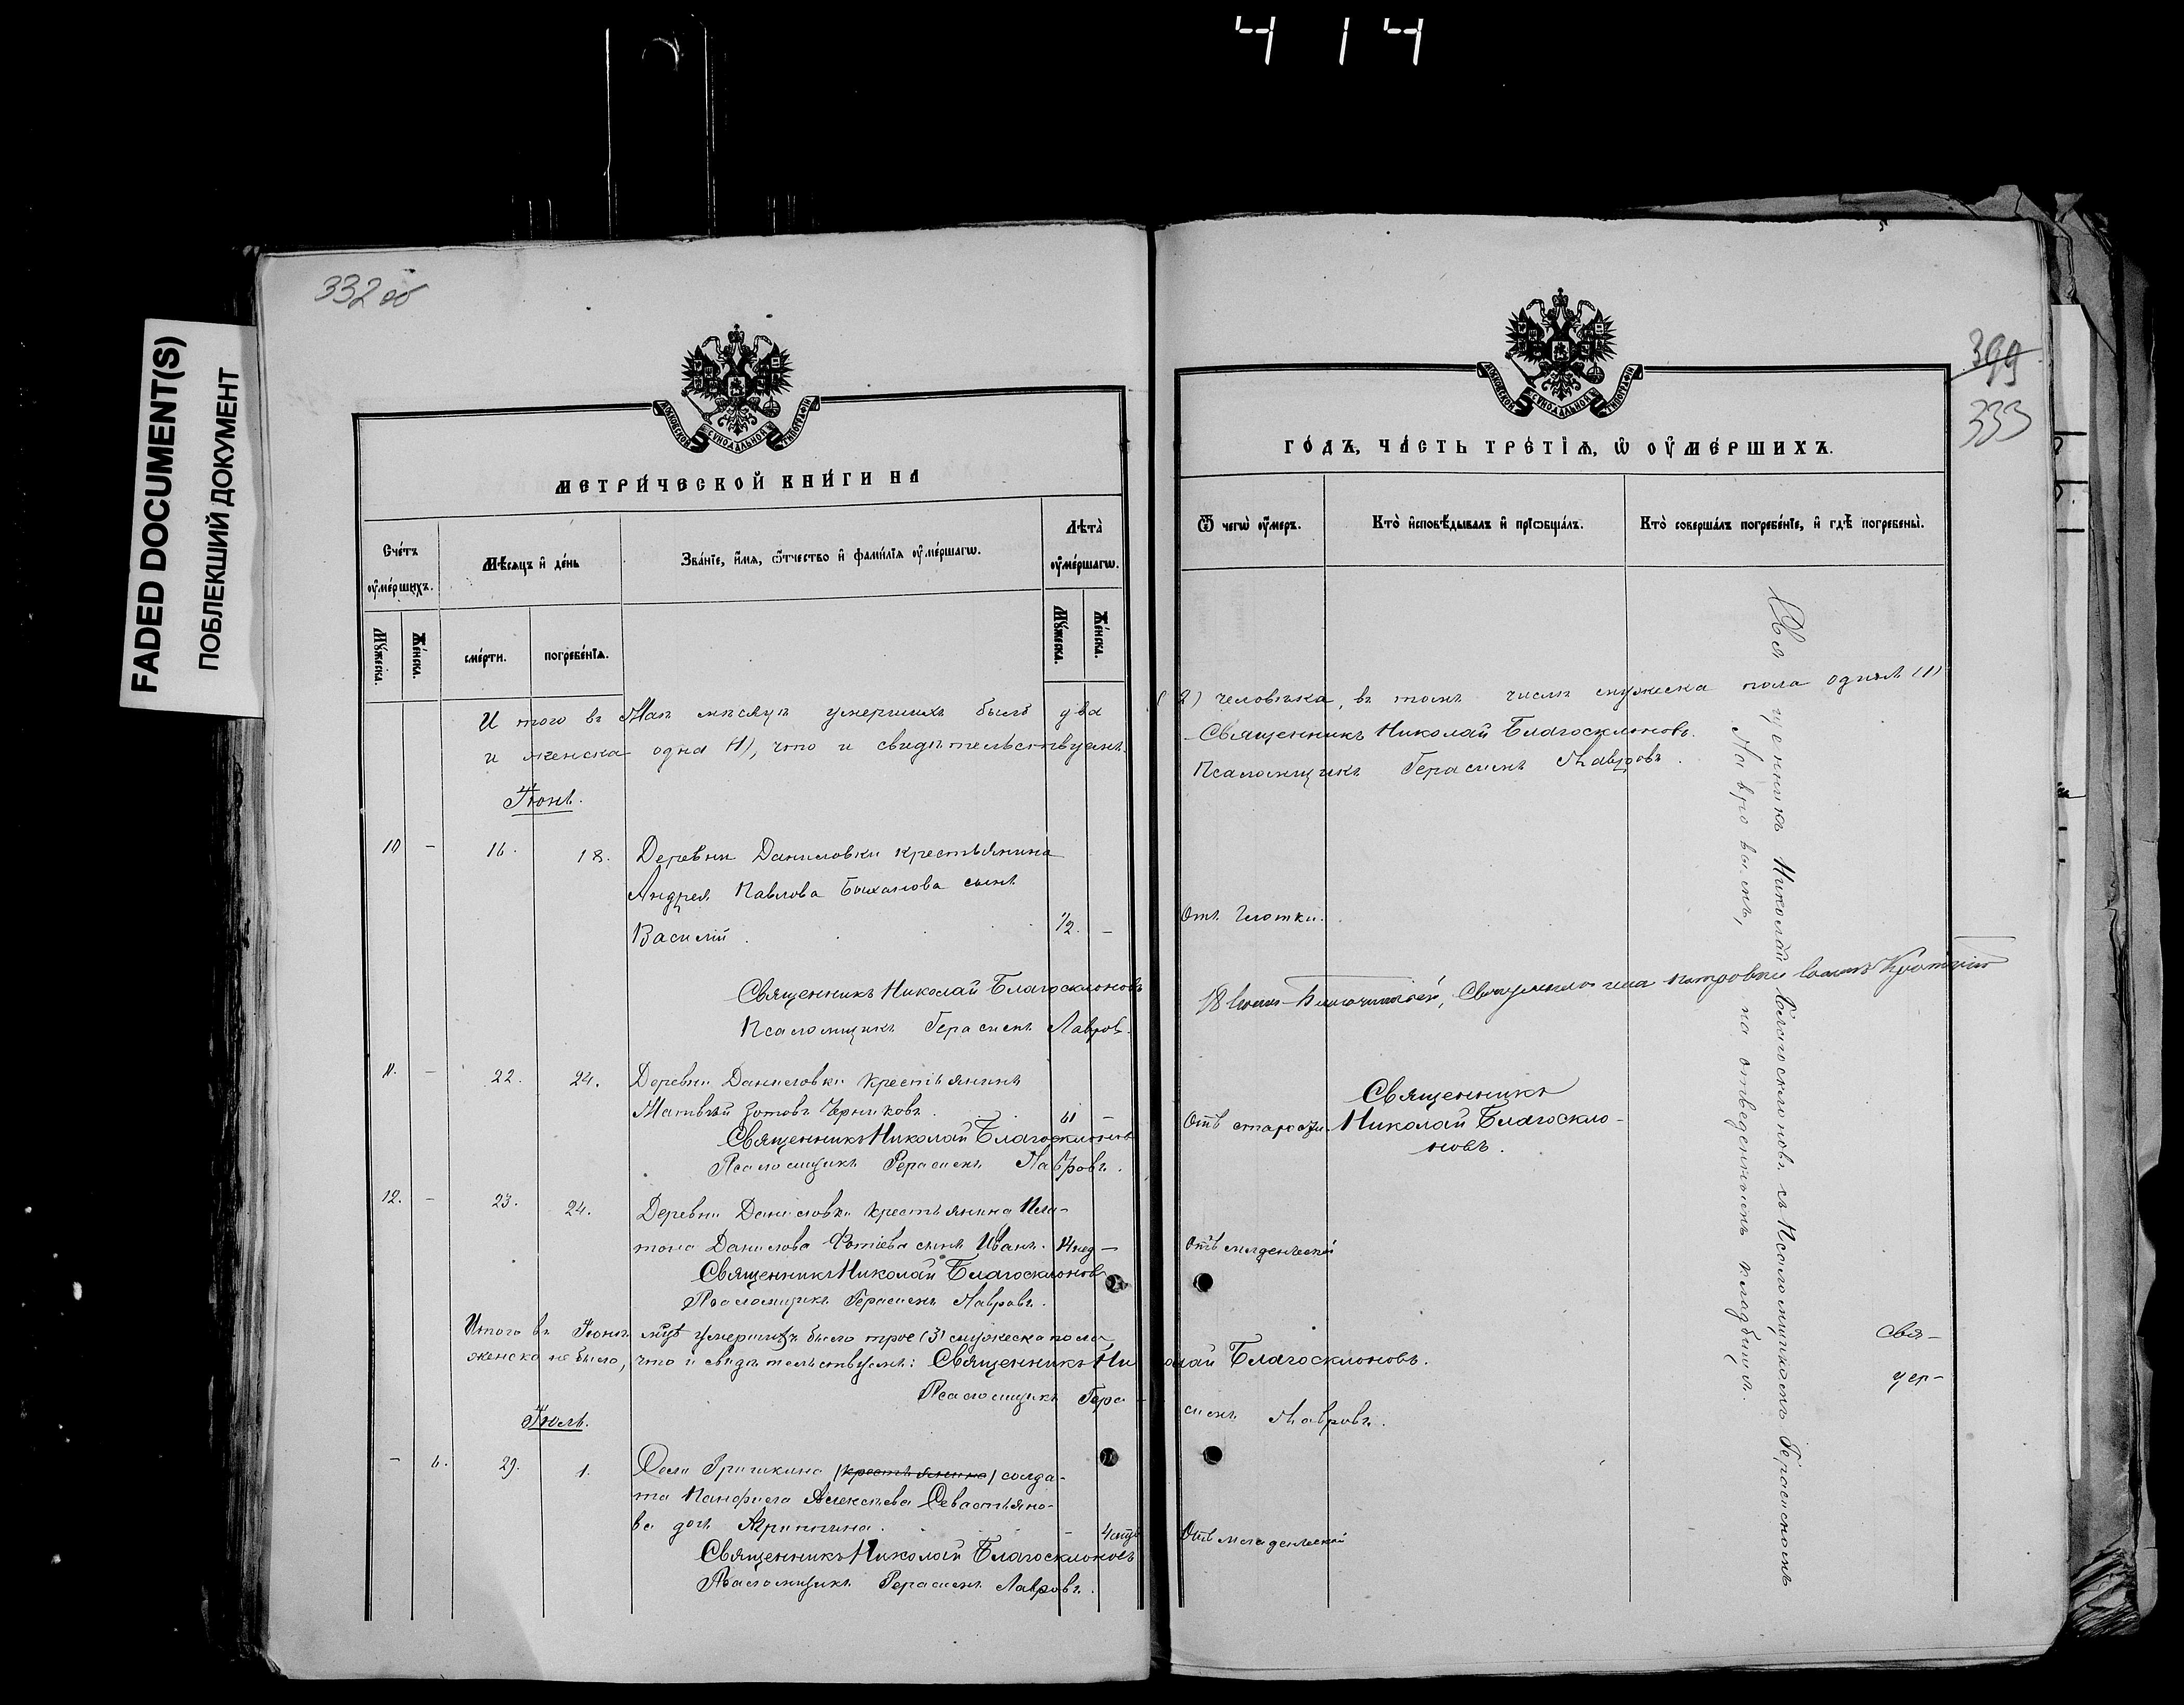 4 1 4
FADED DOCUMENT(S)
ПОБЛЕКШИЙ ДОКУМЕНТ
332 об
МОСКОВСКОЙ СѴНОДАЛЬНОЙ ТИПОГРАФІИ
МЕТРИ́ЧЕСКОЙ КНИ́ГИ НА
Сче́тъ ᲂу҆ме́ршихъ.
Мѣ́сяцъ и҆ де́нь
Зва́нїе, и҆́мѧ, ѻ҆́тчество и҆ фами́лїѧ ᲂу҆ме́ршагѡ.
Лѣта̀ ᲂу҆ме́ршагѡ.
Мꙋ́жеска.
Же́нска.
сме́рти.
погребе́нїѧ.
Мꙋ́жеска.
Же́нска.
Итого въ Маѣ мѣсяцѣ умершихъ было два
и женска одна (1), что и свидѣтельствуемъ.
Іюнь.
10 - 16. 18. Деревни Даниловки крестьянина
Андрея Павлова сынъ
Василій 1/2. -
Священникъ Николай Благосклоновъ
Псаломщикъ Герасимъ Лавровъ.
11. - 22. 24. Деревни Даниловки крестьянинъ
Матвѣй Зотовъ Черниковъ. 61 -
Священникъ Николай Благосклоновъ
Псаломщикъ Герасимъ Лавровъ.
12. - 23. 24. Деревни Даниловки крестьянина Пла-
тона Данилова Фотіева сынъ Иванъ. 14 нед -
Священникъ Николай Благосклоновъ
Псаломщикъ Герасимъ Лавровъ.
Итого въ Іюнѣ мцѣ умершихъ было трое (3) мужеска пола,
женска не было, что и свидѣтельствуемъ: Священникъ Ни
Псаломщикъ Гера-
Іюль.
- 6. 29. 1. Села Гришкина (крестьянина) солда-
та Панфила Алексѣева Севастьяно-
ва дочь Агриппина. - 4 мцъ
Священникъ Николай Благосклоновъ
Псаломщикъ Герасимъ Лавровъ.
399
333
МОСКОВСКОЙ СѴНОДАЛЬНОЙ ТИПОГРАФІИ
ГО́ДЪ, ЧА́СТЬ ТРЕ́ТЇѦ, Ѡ҆ ᲂУ҆МЕ́РШИХЪ.
Ѿ чегѡ̀ ᲂу҆́меръ.
Кто̀ и҆сповѣ́дывалъ и҆ прїѡбща́лъ.
Кто̀ соверша́лъ погребе́нїе, и҆ гдѣ̀ погребены̀.
(2) человѣка, въ томъ числѣ мужеска пола одинъ (1)
Священникъ Николай Благосклоновъ.
Псаломщикъ Герасимъ Лавровъ.
Отъ глотки.
18 Благочинный, Священникъ села Петровки
Священникъ
Отъ старости. Николай Благоскло-
новъ.
Отъ младенческой
колай Благосклоновъ.
симъ Лавровъ.
Отъ младенческой
Священникъ Николай Благосклоновъ съ Псаломщикомъ Герасимомъ
Лавровымъ, на отведенномъ кладбищѣ.
Свя-
цер-